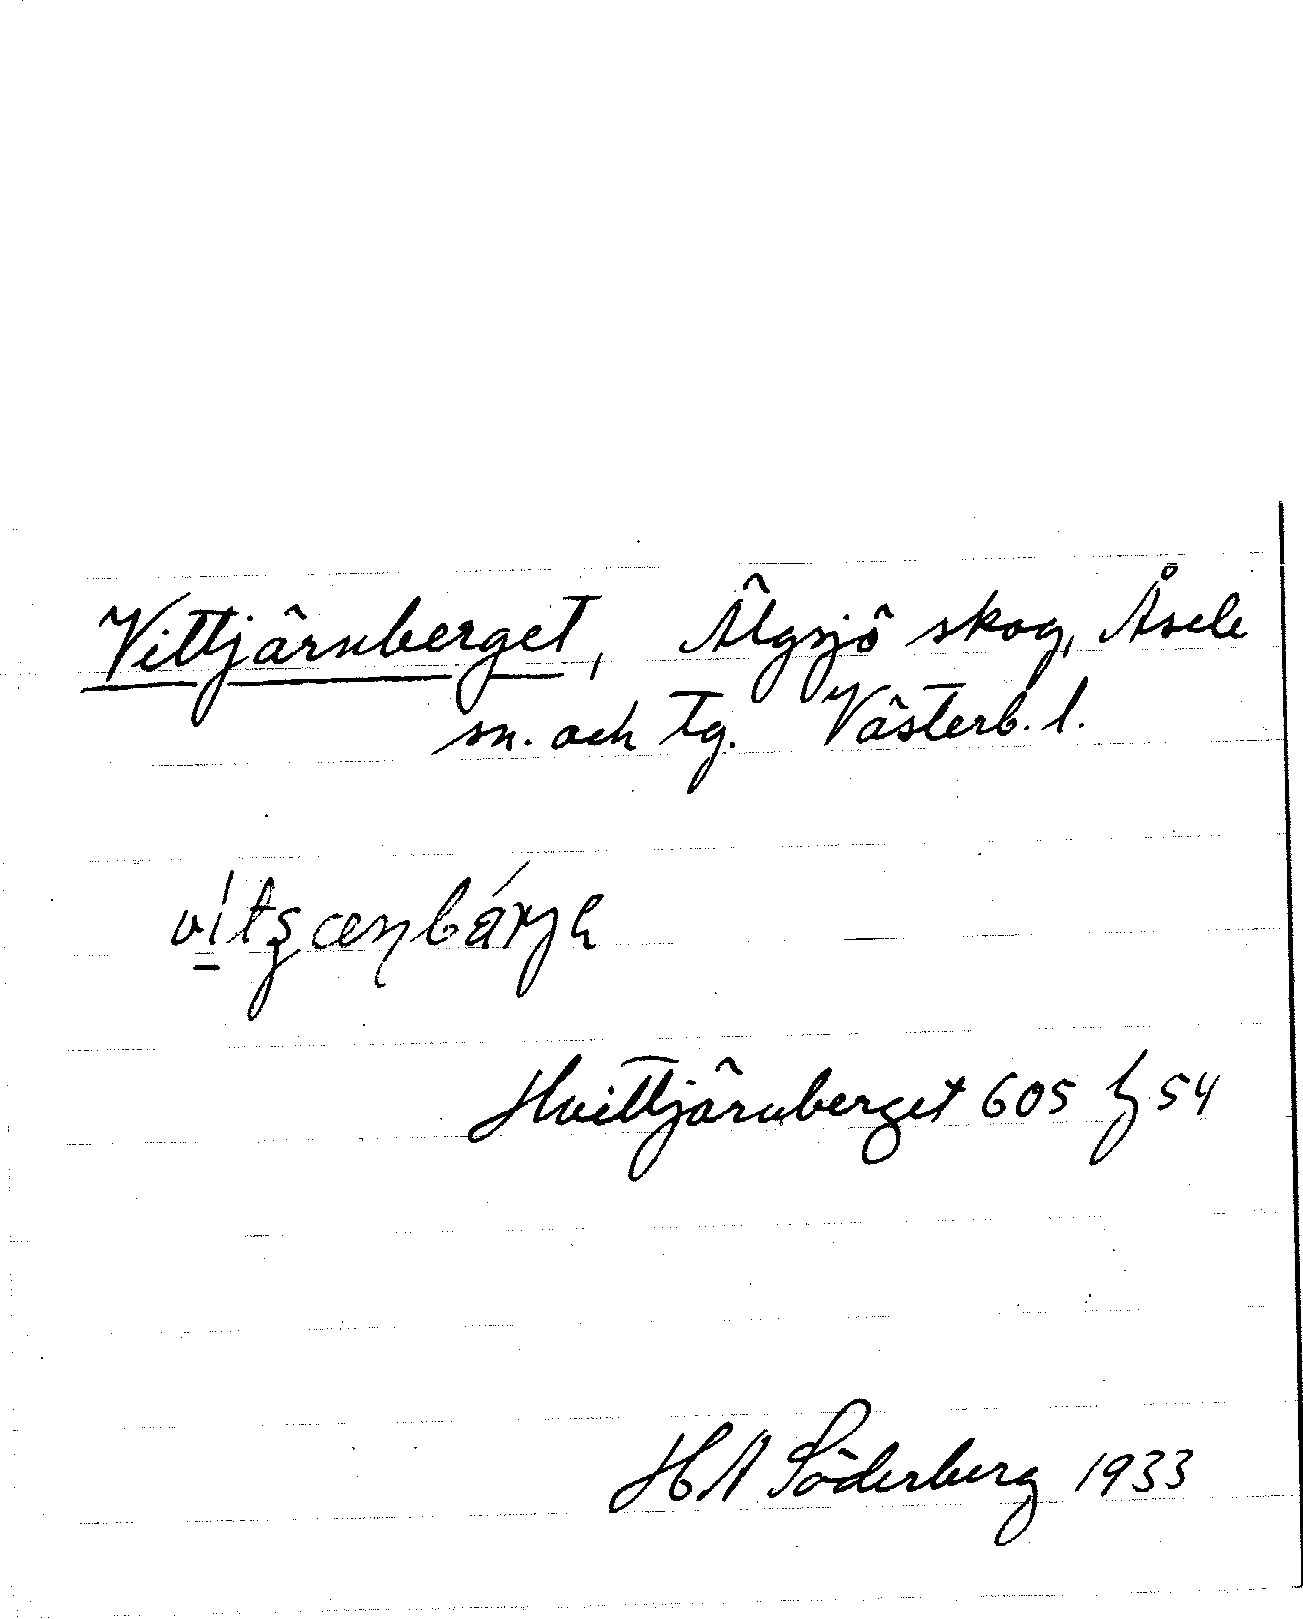 Vittjärnberget, Älgsjö skog, Åsele
sn. och tg. Västerb. l.
Hvittjärnberget 605 54
HA Söderberg 1933